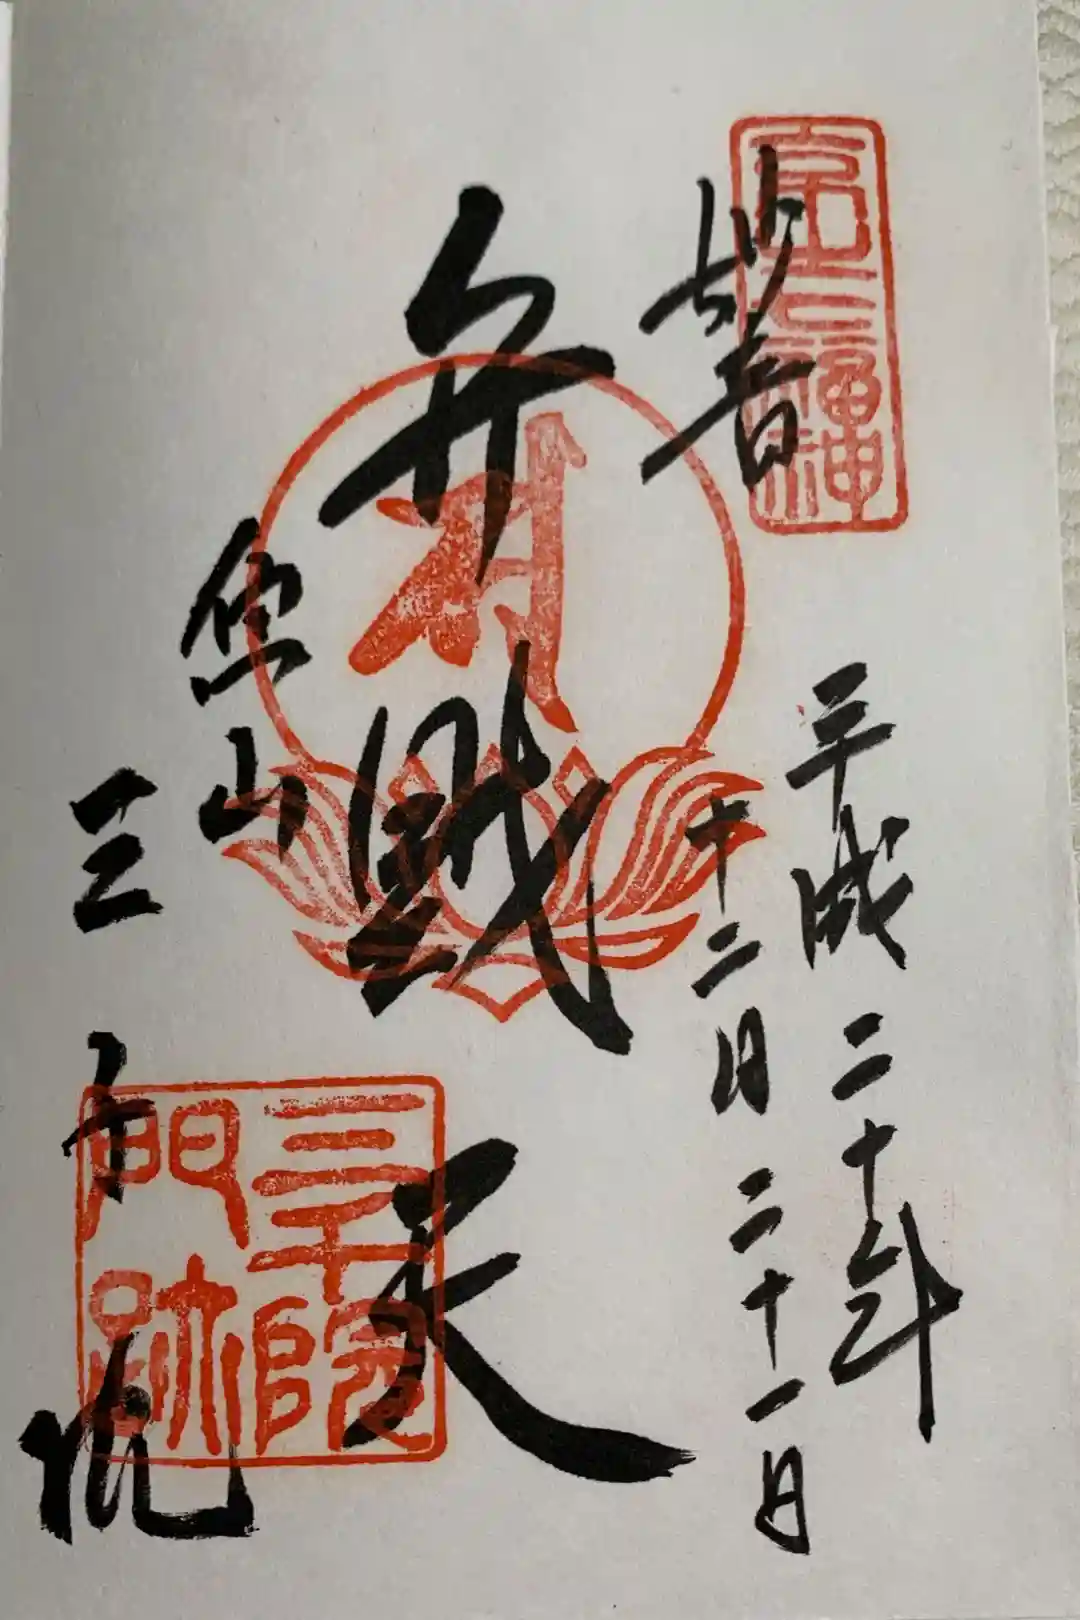 七福神
妙音
平成二十三年
十二月二十一日
弁戝天
魚山
三千院
三千院
門跡